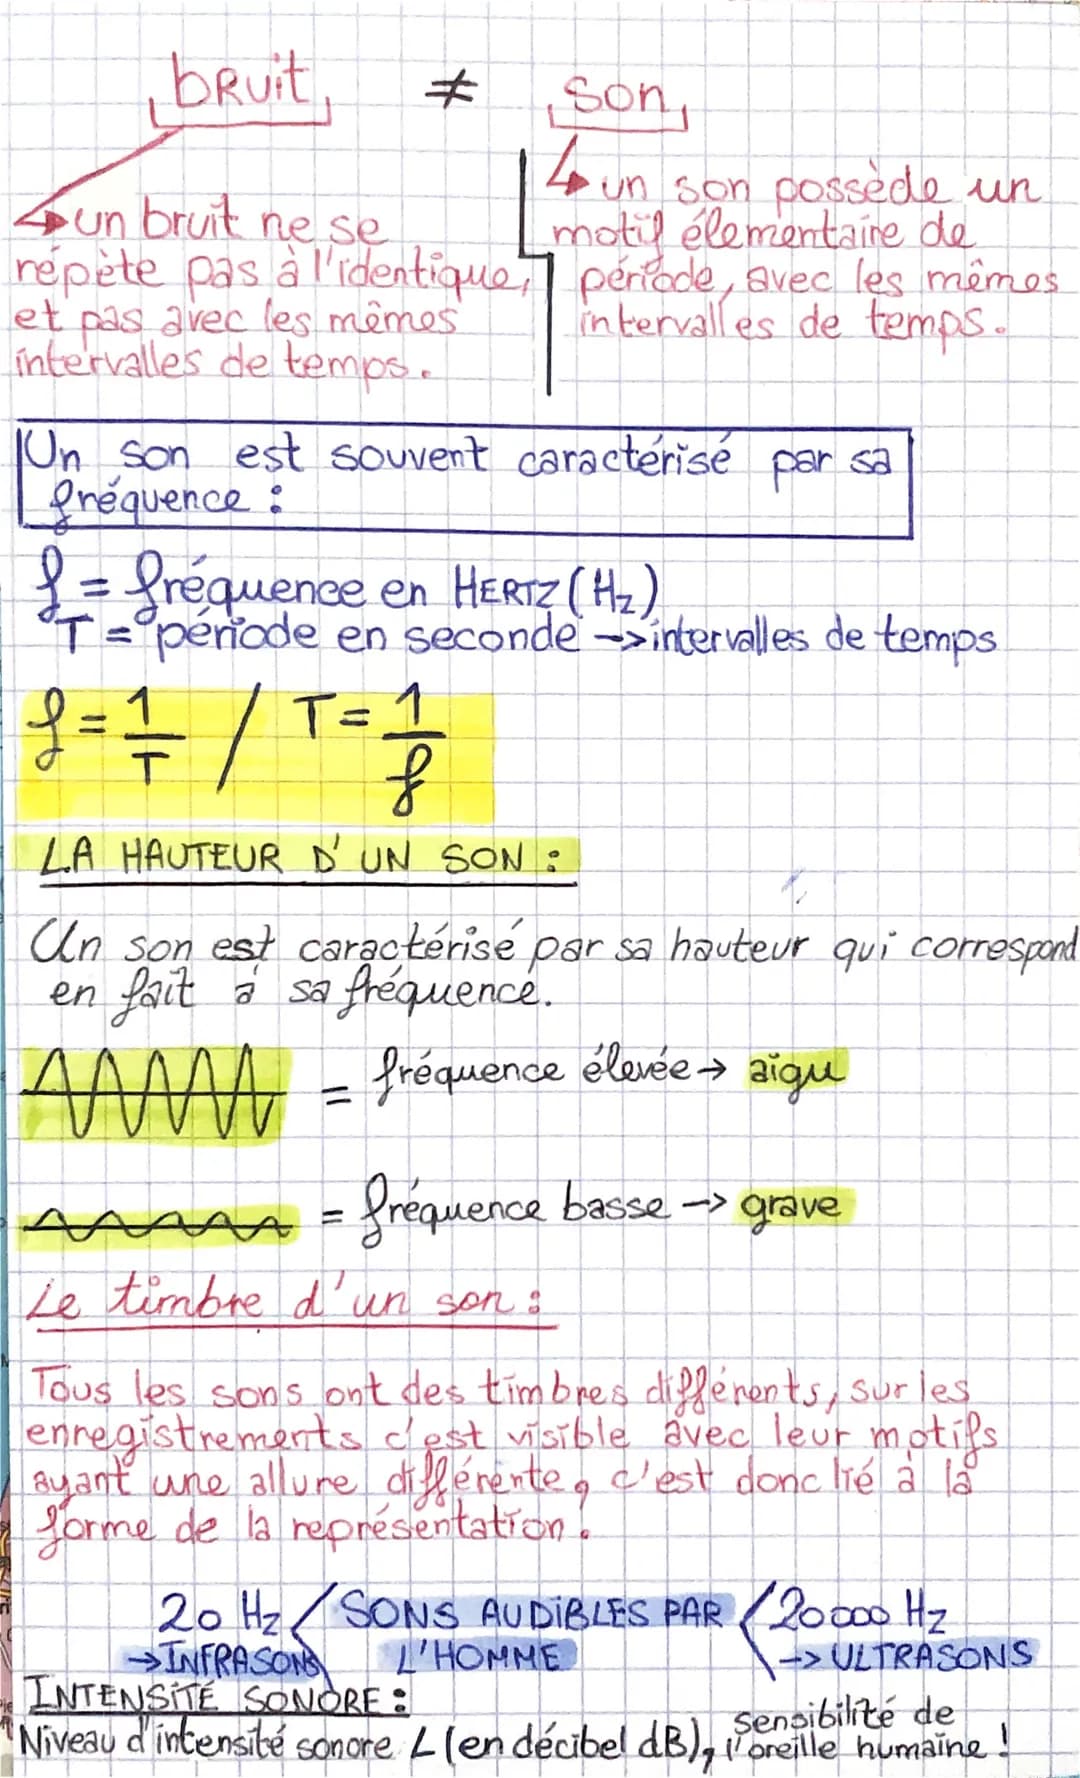 bruit ≠ son
un bruit ne se
répète pas à l'identique,
et pas avec les mêmes
intervalles de temps.
un son possède un
motif élementaire de
période, avec les mêmes
intervalles de temps.
Un son est souvent caractérisé par sa
fréquence :
f = fréquence en HERTZ (Hz)
T = période en seconde -> intervalles de temps
f = 1/T / T = 1/f
LA HAUTEUR D'UN SON :
Un son est caractérisé par sa hauteur qui correspond
en fait à sa fréquence.
= fréquence élevée → aigu
= fréquence basse -> grave
Le timbre d'un son :
Tous les sons ont des timbres différents, sur les
enregistrements c'est visible avec leur motifs
ayant une allure différente, c'est donc lié à la
forme de la représentation.
20 Hz < SONS AUDIBLES PAR < 20000 Hz
→ INFRASONS L'HOMME -> ULTRASONS
INTENSITÉ SONORE :
Niveau d'intensité sonore L (en décibel dB), sensibilité de
l'oreille humaine !